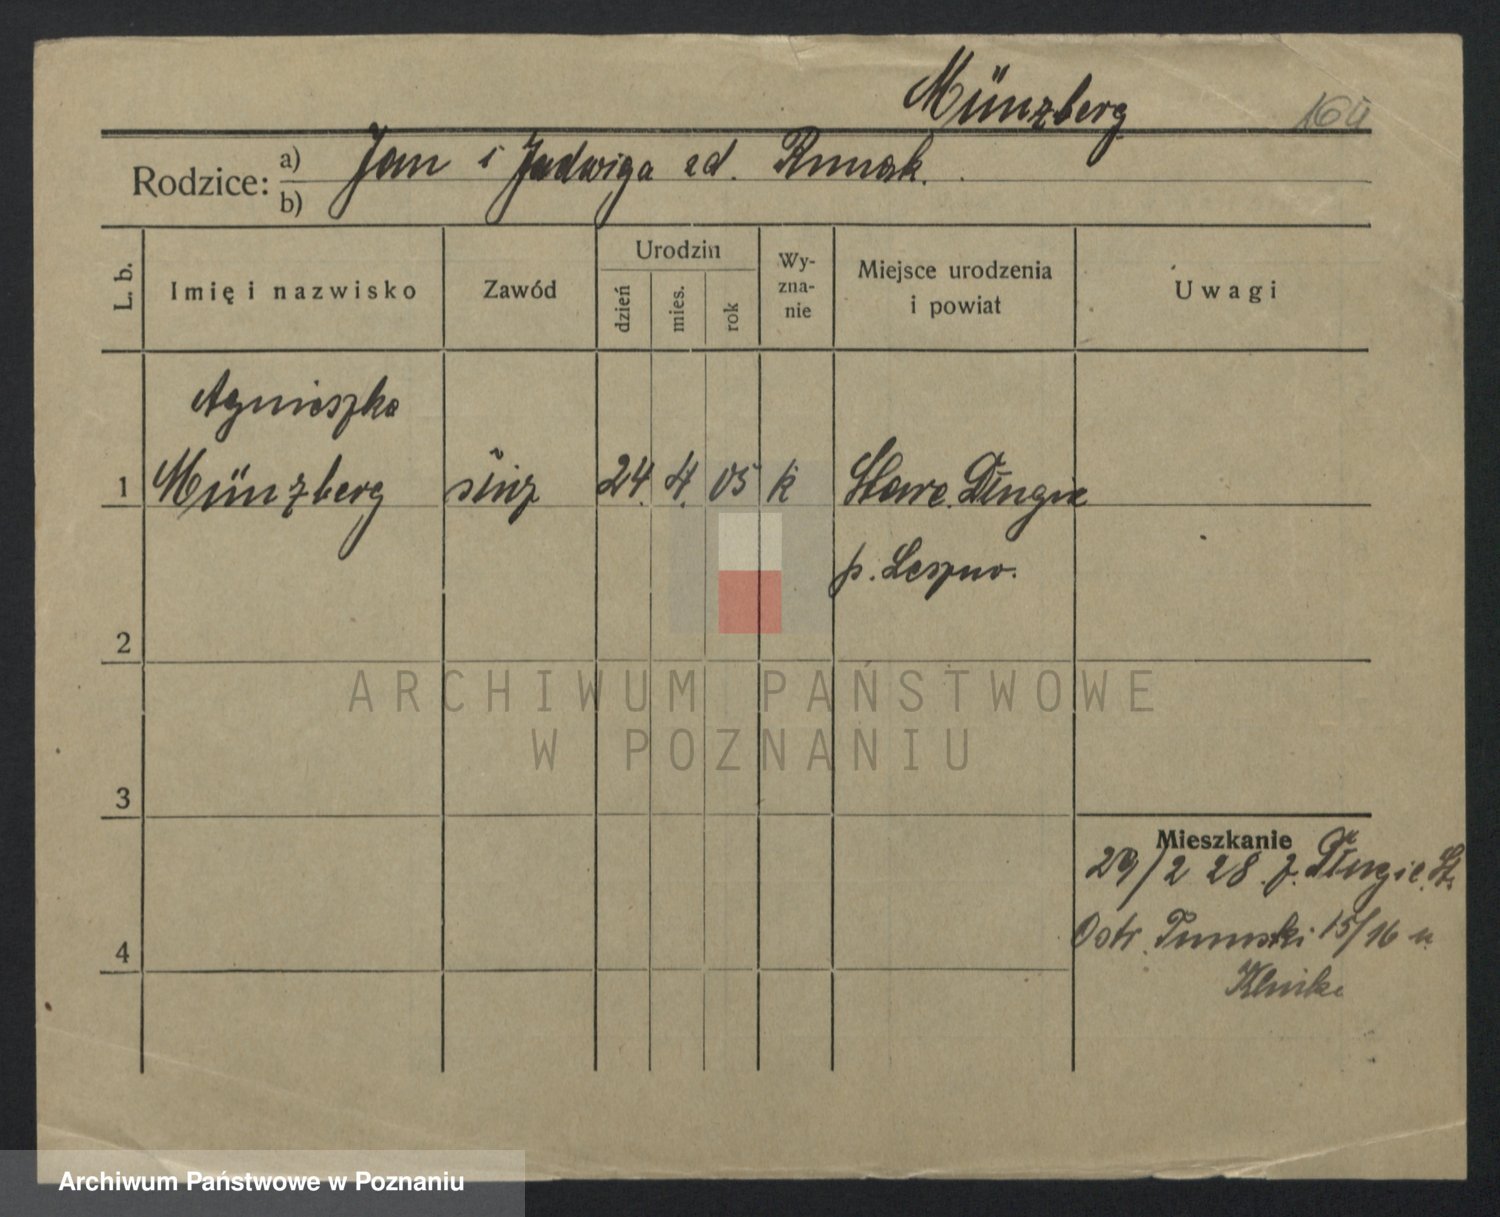 Münzberg 
Rodzice: a) Jan i Jadwiga zd.
b)
L. b. Imię i nazwisko Zawód Urodzin dzień mies. rok Wyznanie Miejsce urodzenia i powiat Uwagi
Agnieszka
1 Münzberg służ 24. 4. 05 k Stare Długie
p. Leszno.
2
3
Mieszkanie
29/2 28. z. Długie St.
Ostr. Tumski 15/16 u
4
Klinke
ARCHIWUM PAŃSTWOWE
W POZNANIU
Archiwum Państwowe w Poznaniu